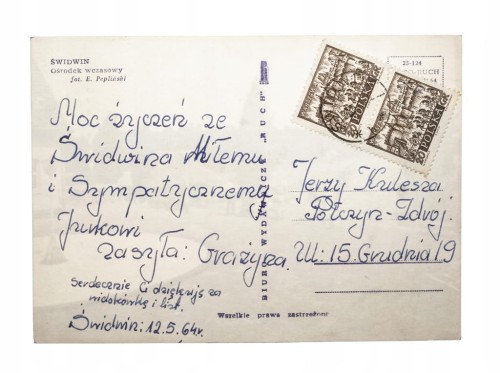 ŚWIDWIN
Ośrodek wczasowy
fot. E. Pepliński
Moc życzeń ze
Świdwina Miłemu
i Sympatycznemu
Jurkowi
zasyła: Grażyna.
Serdecznie Ci dziękuję za
widokówkę i list.
Świdwin: 12.5.64r.
BIURO WYDAWNICZE „RUCH”
25-134
RUCH
64
POLSKA
POLSKA
Jerzy Kulesza
Połczyn-Zdrój.
Ul: 15. Grudnia 19
Wszelkie prawa zastrzeżone